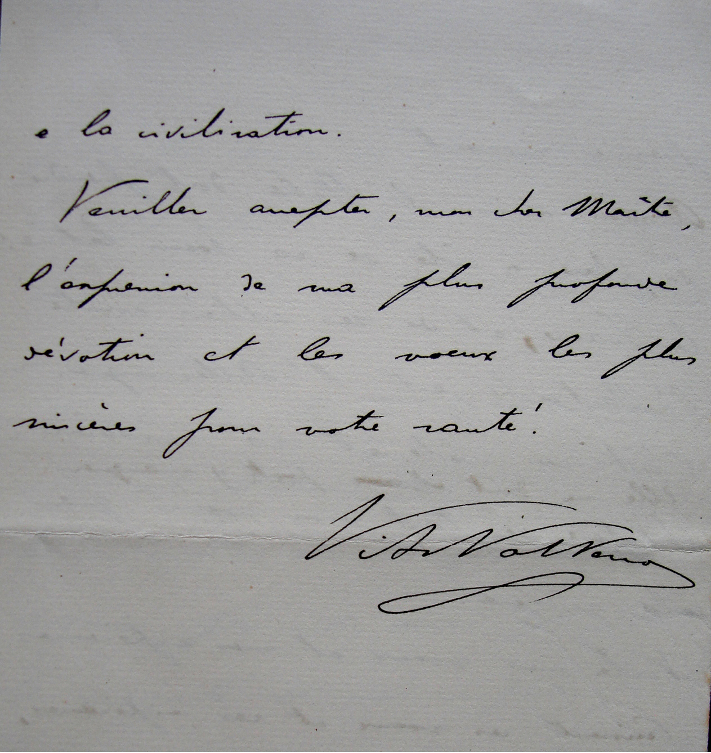 e la civilisation.
Veuillez accepter, mon cher Maître,
l'expression de ma plus profonde
dévotion et les voeux les plus
sincères pour votre santé!